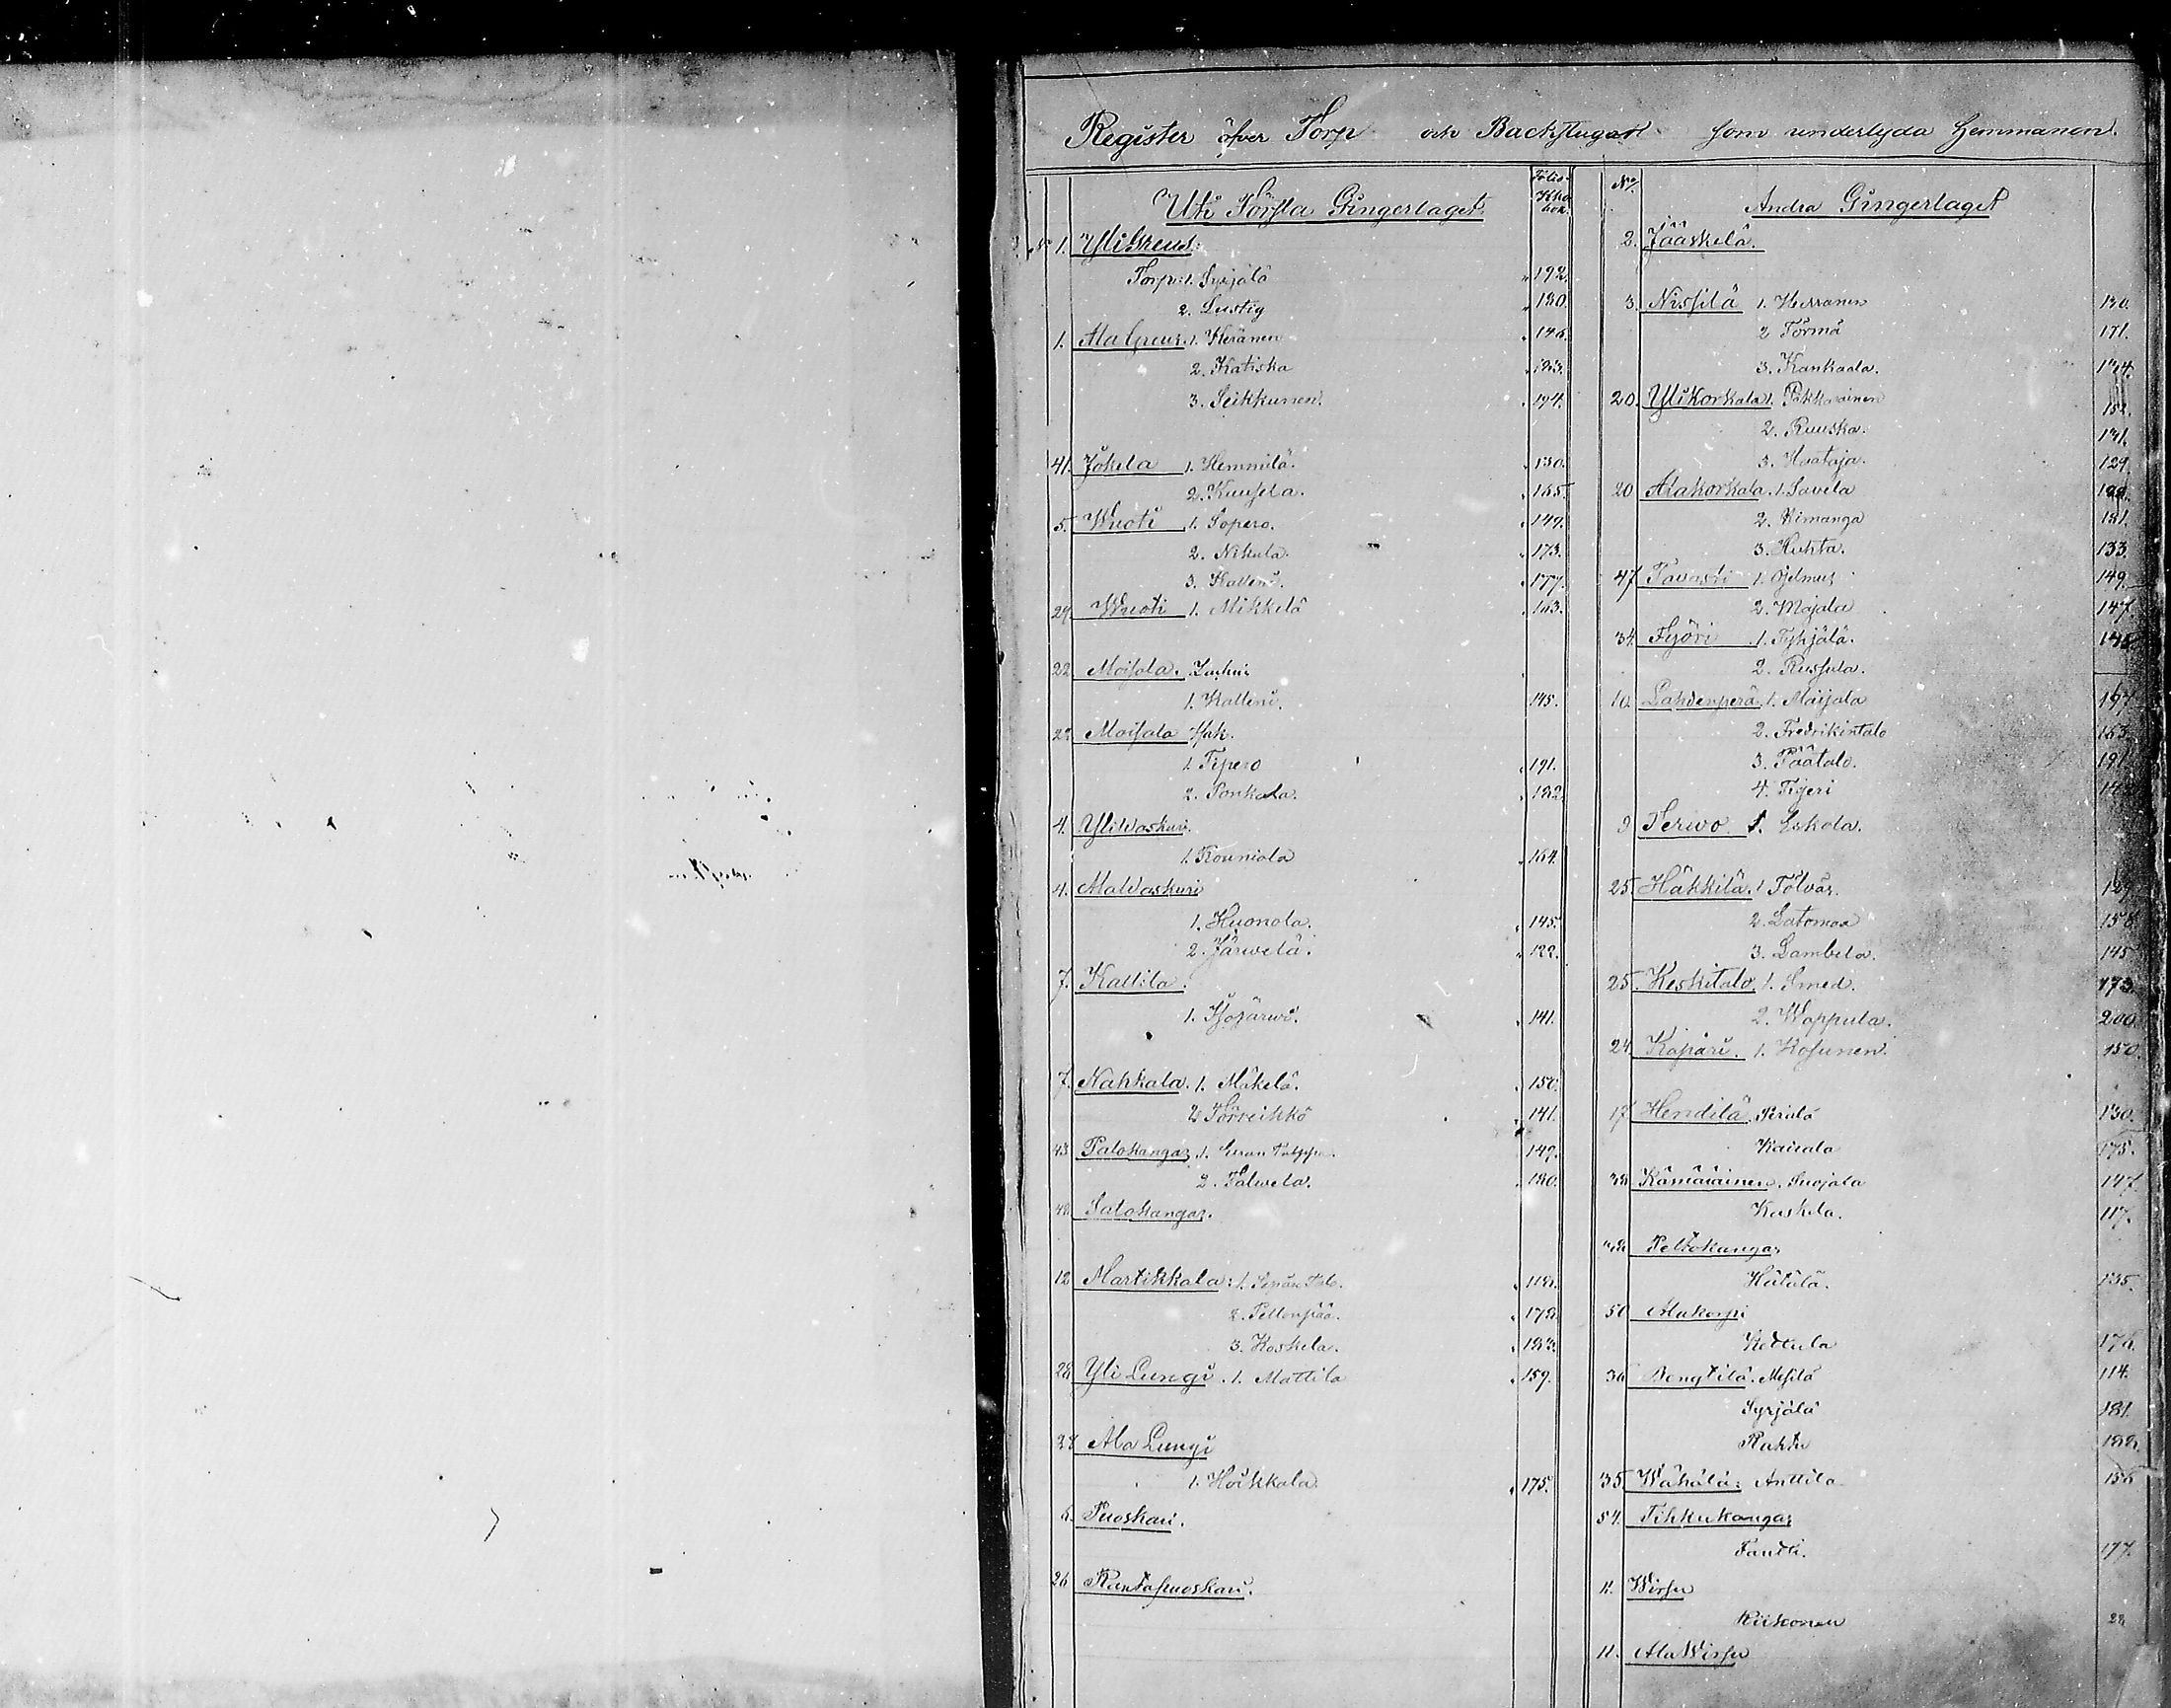 Register öfver Torp och Backstugor som underlyda Hemmanen.
Folio
Uti Första Gingerlaget
No 1. YliKreus:
Torp: 1. Syrjälä 192.
2. Lustig 180.
1. AlaGreus. 1. Keränen 146.
2. Katiska
3. Seikkunen. 194.
41. Jokela 1. Hemmilä. 130.
2. Kuusela. 165.
5. Wuoti 1. Sopero. 149.
2. Nikula. 173.
3. 177.
29. Wuoti 1. Mikkelä 163.
22 Moisala.
1. Kallini. 145.
22 Moisala Isak.
1. Tipero 191.
2. Ponkala. 182.
4. YliWaskuri.
1. Kouniola 164.
4. AlaWaskuri
1. Huonola. 145.
2. Järwelä. 122.
7. Kallila.
1. Isojärwi. 141.
7. Nahkala. 1. Mäkelä. 150.
2 Törreikkö 141.
43 Palokangas. 1. 149.
2. Salwela. 180.
48 Salokangas.
12 Martikkala: 1. Sepän Talo.
2. Peltonpää. 178.
3. Koskela. 183.
28 Yli Lungi. 1. Mattila 159.
28 Ala Lungi
1. Hoikkala 175.
6. Puoskari.
26 Rantapuoskari.
No.
Andra Gingerlaget
2. Jääskelä.
3. Nissilä 1. Herranen 130
2 Törmä 171.
3. Kankaala. 174.
20. YliKorkala 1. Pikkarainen 152.
2. Ruuska. 131.
3. Haataja. 129.
20 Alakorkala. 1. Savela
2. Kimanga 181.
3. Huhta. 133.
47 Tavasti 1. 149.
2. Majala 147
34 Työri 1. Tyhjälä. 145
2. Russula.
10. Lahdenperä. 1. Maijala 197
2. Fredrikintalo 163
3. Päätalo. 191
4. Tijeri
9 Terwo 1. Eskola.
25 Häkkilä. 1 Tölväs. 129
2. Latomaa 158
3. Lambela. 145
25. Keskitalo 1. Smed. 173.
2. Wappula. 200
24 Käpäri. 1. Kosunen. 150.
17 Hendilä. Perälä 130.
Kairala 175.
38 Kämäräinen. Suojala 147
Kuskela. 117.
48 Peltokangas
Hätälä. 135.
50 Alakorpi
Kettula 176.
36 Bengtilä. 114.
Syrjälä 181.
Rahtu
35. Wähälä: Anttila 156
54. Tihkukangas
Tantti. 177.
11. Wirsu
Kiikonen 28
11. Ala Wirsu